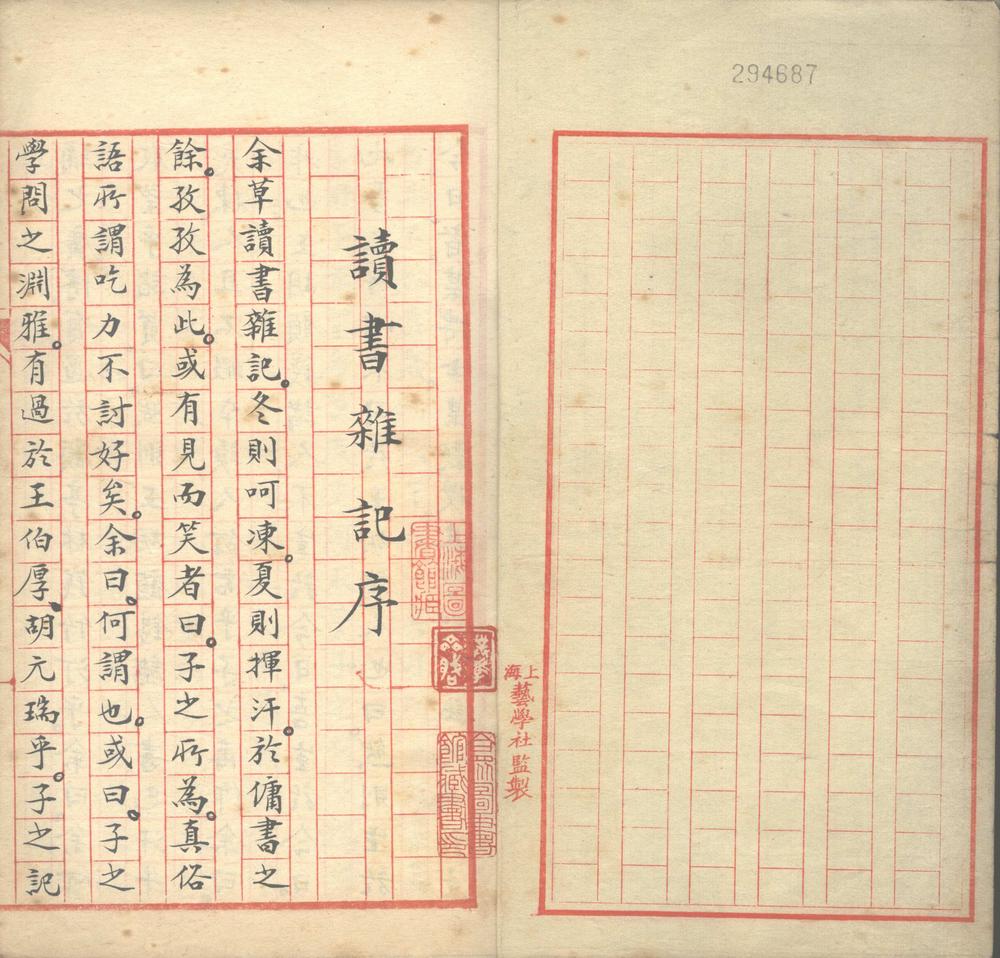 294687
上海藝學社監製
上海圖書館藏
合眾圖書館藏書印
讀書雜記序
余草讀書雜記。冬則呵凍。夏則揮汗。於傭書之
餘。孜孜為此。或有見而笑者曰。子之所為。真俗
語所謂吃力不討好矣。余曰。何謂也。或曰。子之
學問之淵雅。有過於王伯厚、胡元瑞乎。子之記